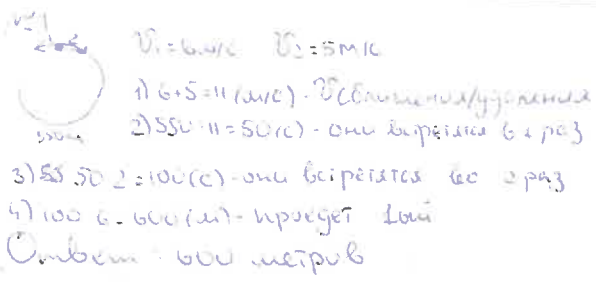 V₁ = 6 м/с V₂ = 5 м/с
550м
1) 6+5=11 (м/с) - V сближения/удаления
2) 550:11=50 (с) - они встретятся в 1 раз
3) 50·2=100 (с) - они встретятся во 2 раз
4) 100·6=600 (м) - проедет 1ый
Ответ: 600 метров